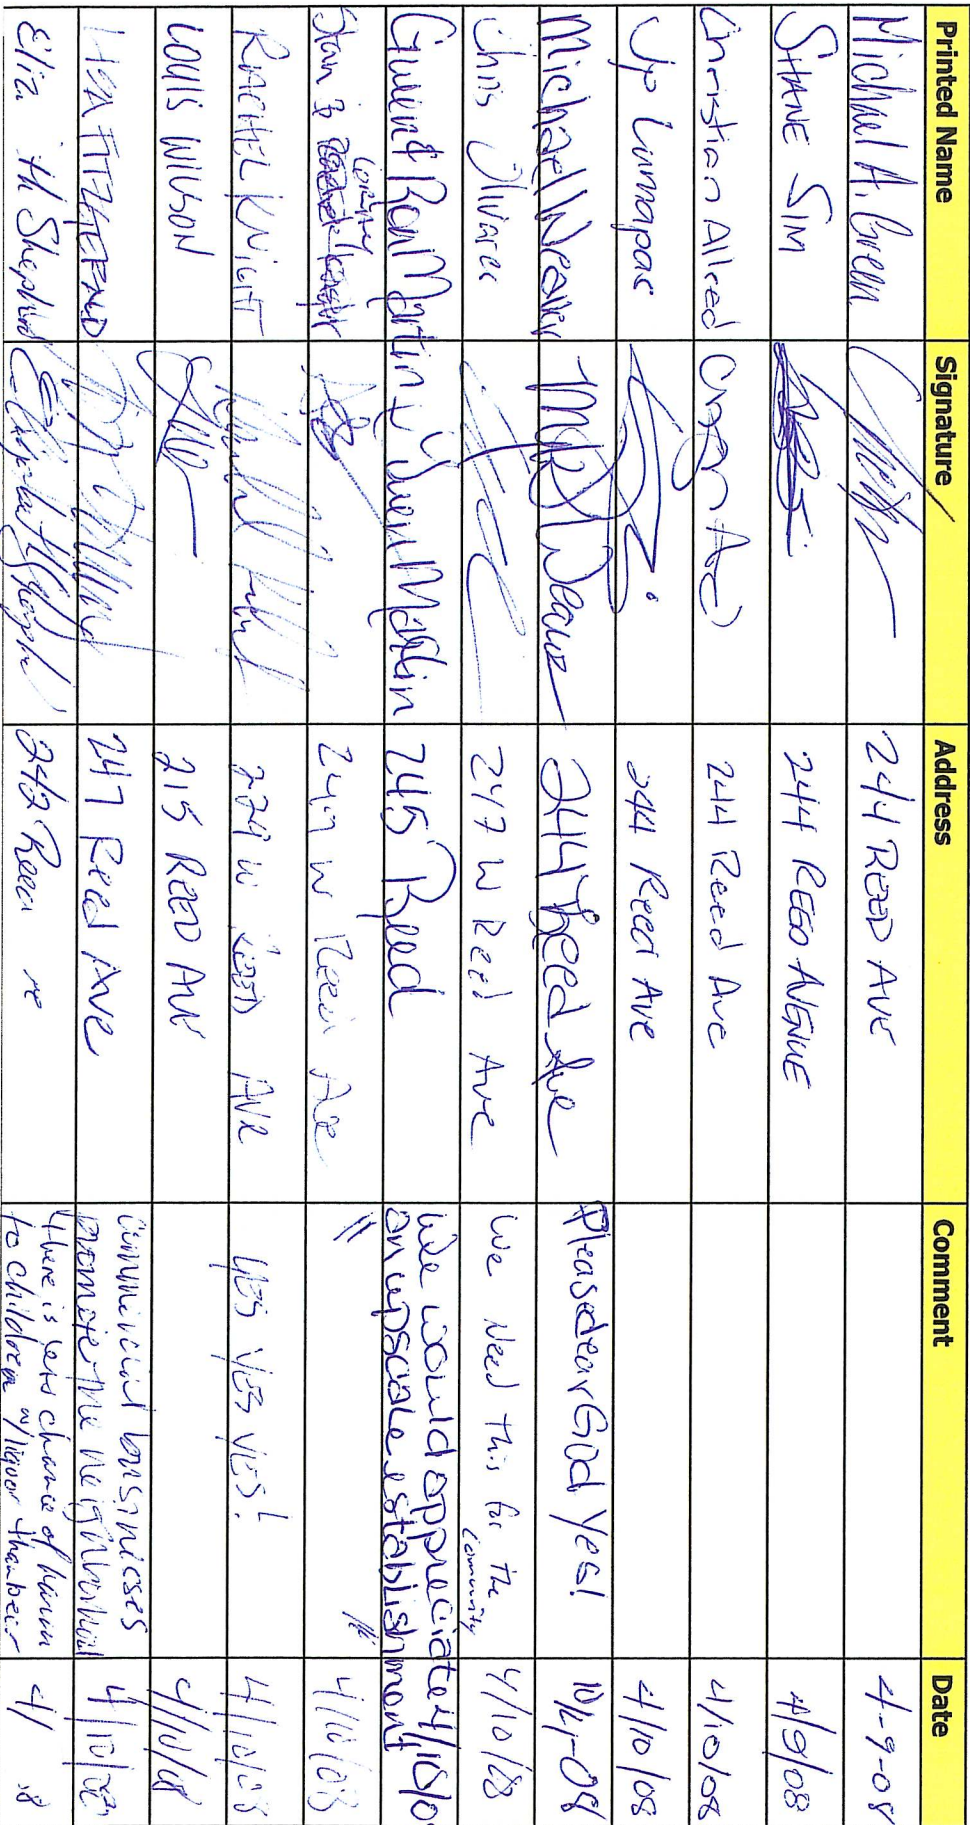 Printed Name Signature Address Comment Date
Michael A. Green 244 REED AVE 4-9-08
SHANE SIM 244 REED AVENUE 4/9/08
Christian Allred 244 Reed Ave 4/10/08
244 Reed Ave 4/10/08
Michael Weaver 244 Reed Ave Please dear God Yes! 10/4-08
Chris 247 W Reed Ave We Need this for the community 4/10/08
Gwen & Ron Martin Gwen Martin 245 Reed We would appreciate an upscale establishment 4/10/0
Stan & 247 W Reed Ave " " 4/10/08
RACHEL KNIGHT 229 W REED AVE YES YES YES! 4/10/08
LOUIS WILSON 215 REED AVE 4/10/08
LISA FITZGERALD 247 Reed Ave Commercial businesses promote the neighborhood 4/10/08
Eliz th Shephard 242 Reed ve there is less chance of harm to children w/liquor than beer 4/ 8